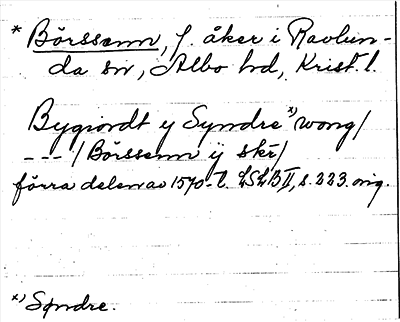 * Börssenn, f. åker i Ravlun-
da sn, Albo hd, Krist. l.
Bygiordt y Syndre *) wong/
--- /Börssenn ÿ skr/
förra delen av 1570-t. LSLB II, s. 223. orig.
*) Søndre.